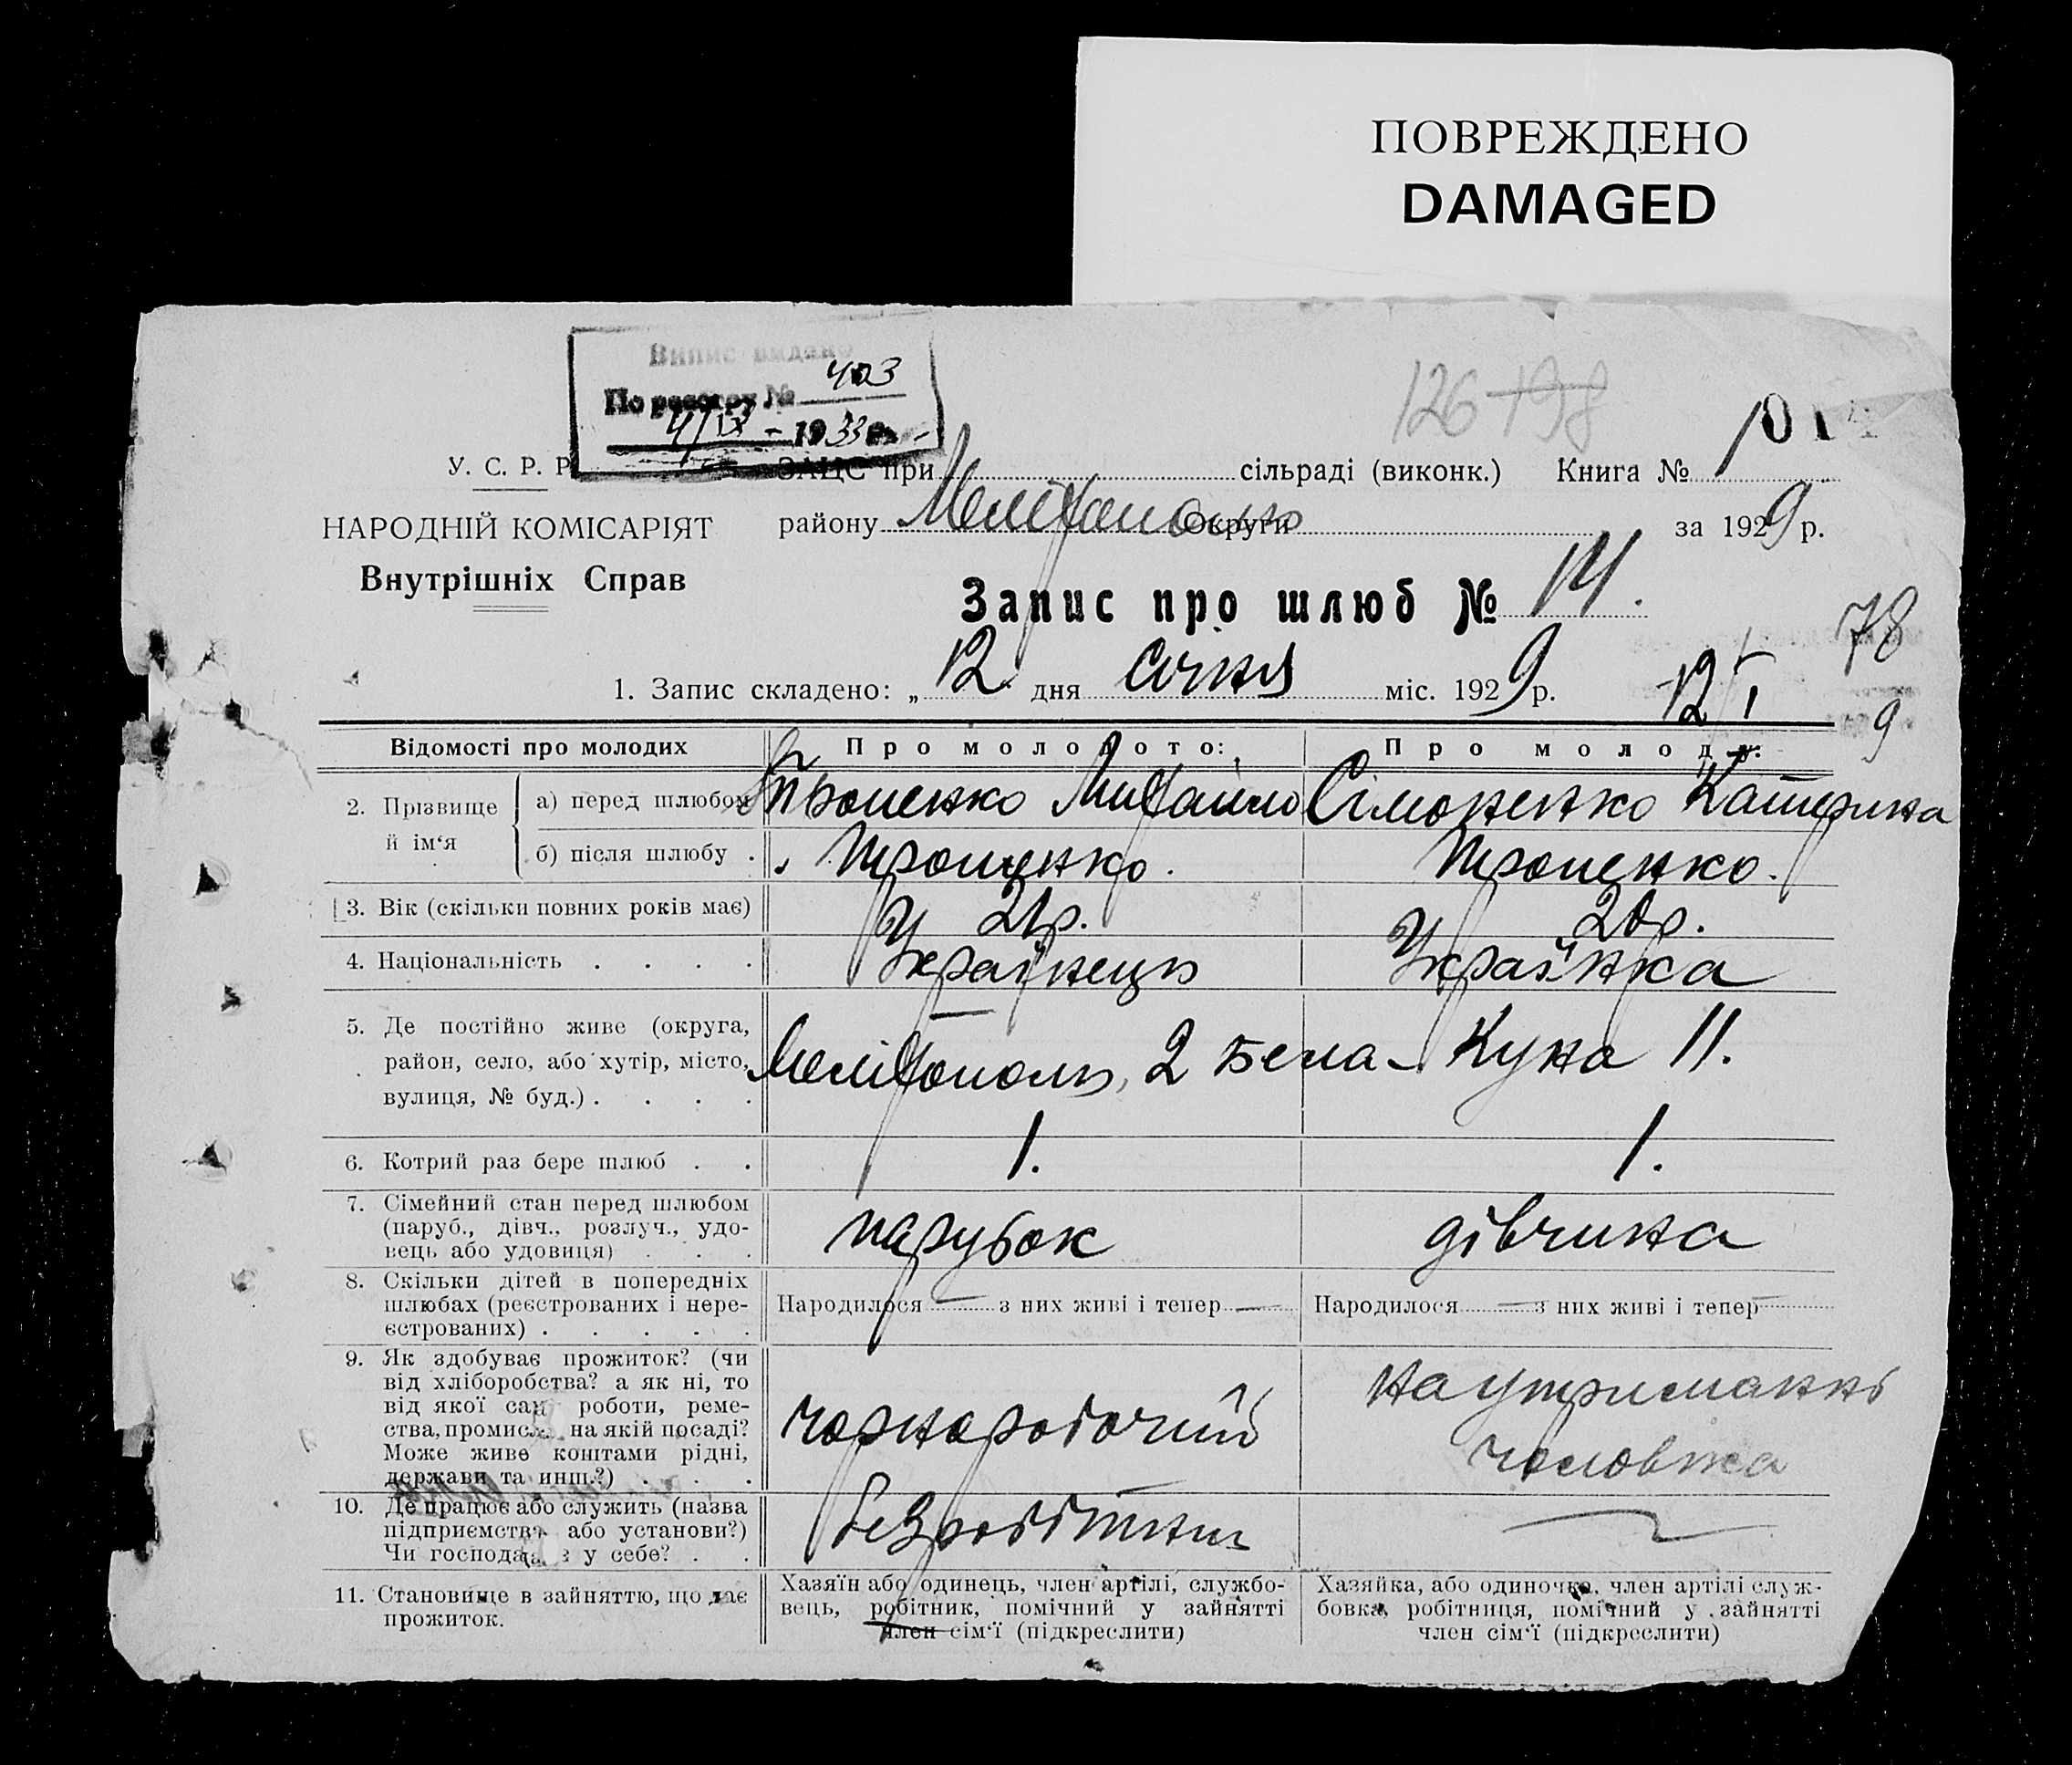 ПОВРЕЖДЕНО
DAMAGED
Випис видано
По реестру № 403
4/IX - 1933 г.
126-198
У. С. Р. Р.
ЗАЦС при сільраді (виконк.) Книга № 1
НАРОДНІЙ КОМІСАРІЯТ
Внутрішніх Справ
району Меліхополь Округи за 1929 р.
Запис про шлюб № 14.
78
1. Запис складено: „12" дня Січня міс. 1929 р.
12/I 9
Відомості про молодих Про молодого: Про молоду:
2. Прізвище й ім'я
а) перед шлюбом Михайло Сімоненко Катерина
б) після шлюбу . Троценко. Троценко.
3. Вік (скільки повних років має) 21р. 20р.
4. Національність . . . . Українець Українка
5. Де постійно живе (округа,
район, село, або хутір, місто,
вулиця, № буд.) . . . .
Меліхополь, 2 Бела-Куна 11.
6. Котрий раз бере шлюб . . 1. 1.
7. Сімейний стан перед шлюбом
(паруб., дівч., розлуч., удо-
вець або удовиця) . . .
парубок дівчина
8. Скільки дітей в попередніх
шлюбах (реєстрованих і нере-
єстрованих) . . . . .
Народилося — з них живі і тепер — Народилося — з них живі і тепер —
9. Як здобуває прожиток? (чи
від хліборобства? а як ні, то
від якої роботи, реме-
ства, на якій посаді?
Може живе коштами рідні,
держави та инш.?) . . .
чорноробочий
на утриманні
чоловіка
10. Де працює або служить (назва
підприємства або установи?)
Чи у себе? . .
безробітний —
11. Становище в зайняттю, що дає
прожиток.
Хазяїн або одинець, член артілі, службо-
вець, робітник, помічний у зайнятті
член сім'ї (підкреслити)
Хазяйка, або одиночка, член артілі служ-
бовка, робітниця, помічний у зайнятті
член сім'ї (підкреслити)